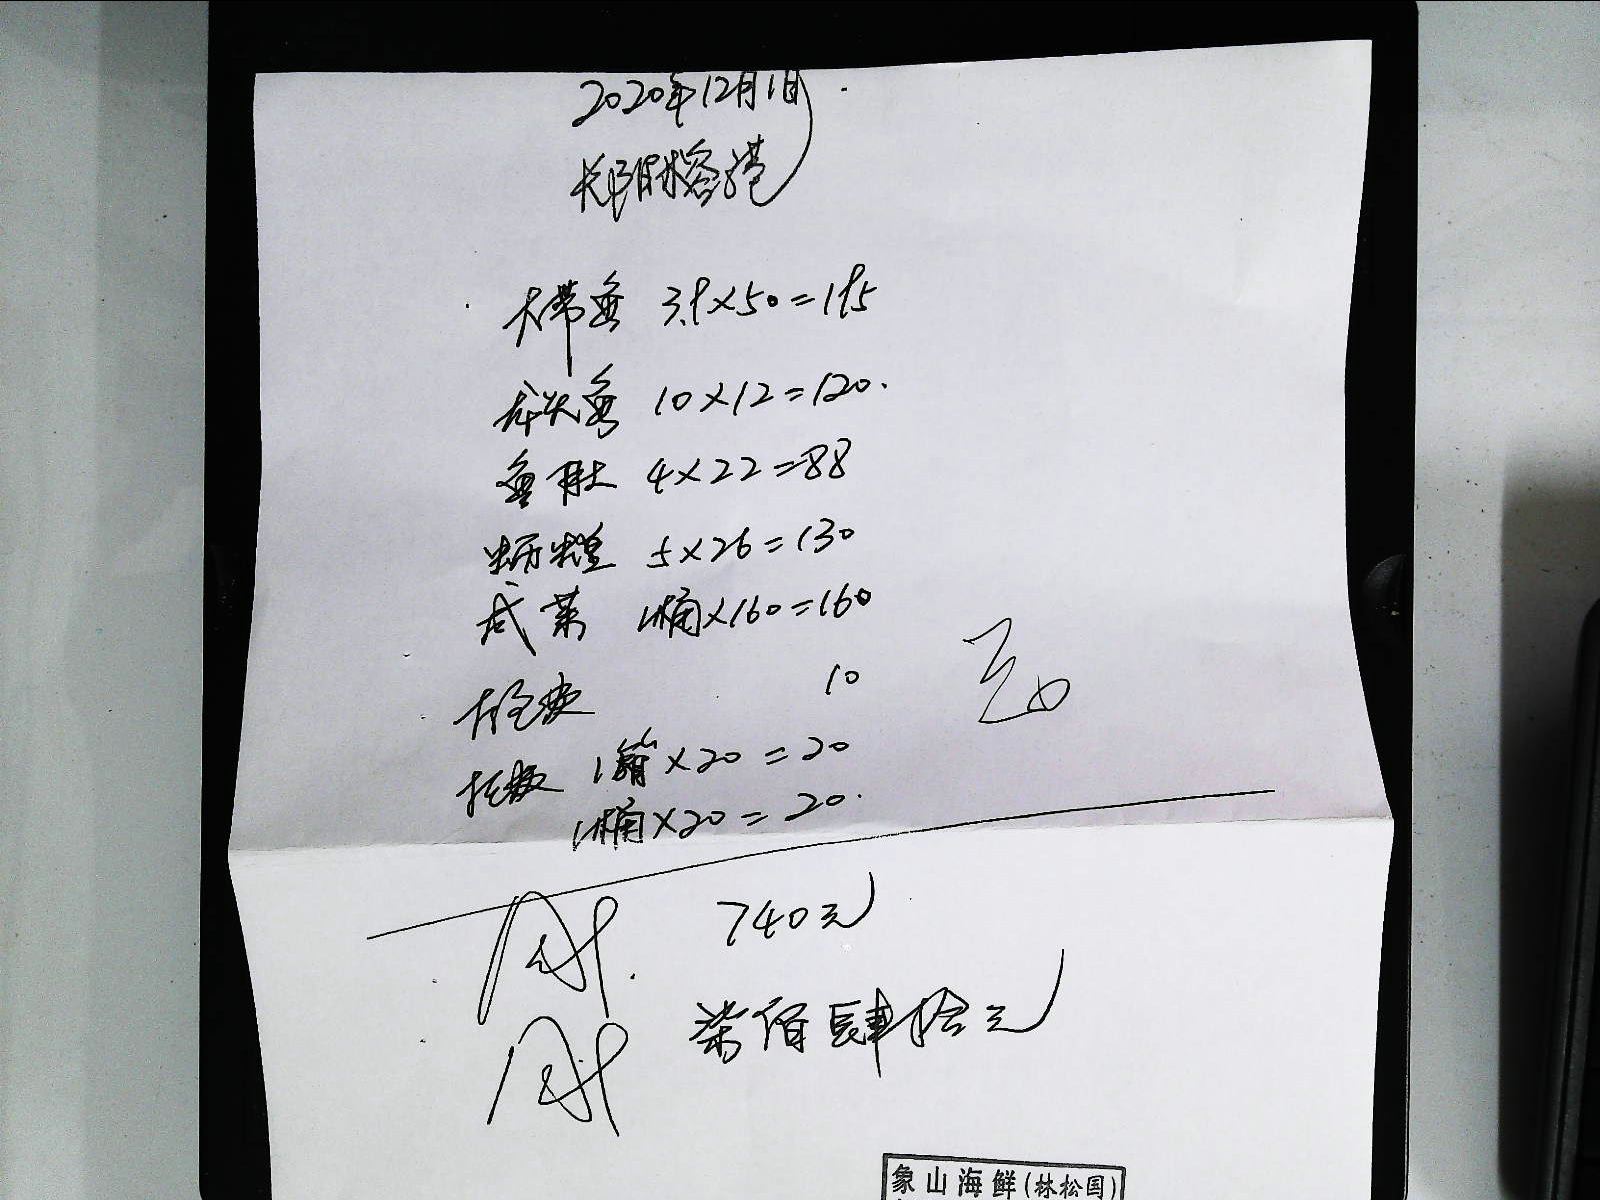 2020年12月1日
郑阳榕港
大带鱼 3.9×50=195
龙头鱼 10×12=120.
鱼肚 4×22=88
牡蛎 5×26=130
咸菜 1桶×160=160
打包费 10
托板 1箱×20=20
1桶×20=20.
740元
柒佰肆拾元
象山海鲜(林松国)